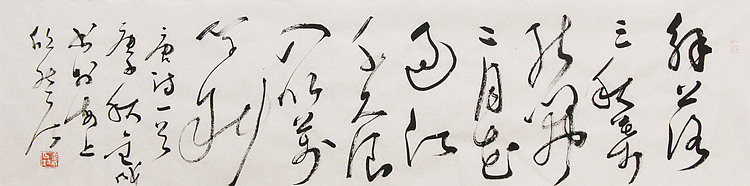 解落
三秋葉
能開
二月花
過江
千尺浪
入竹萬
竿斜
唐詩一首
庚子秋
書於海上